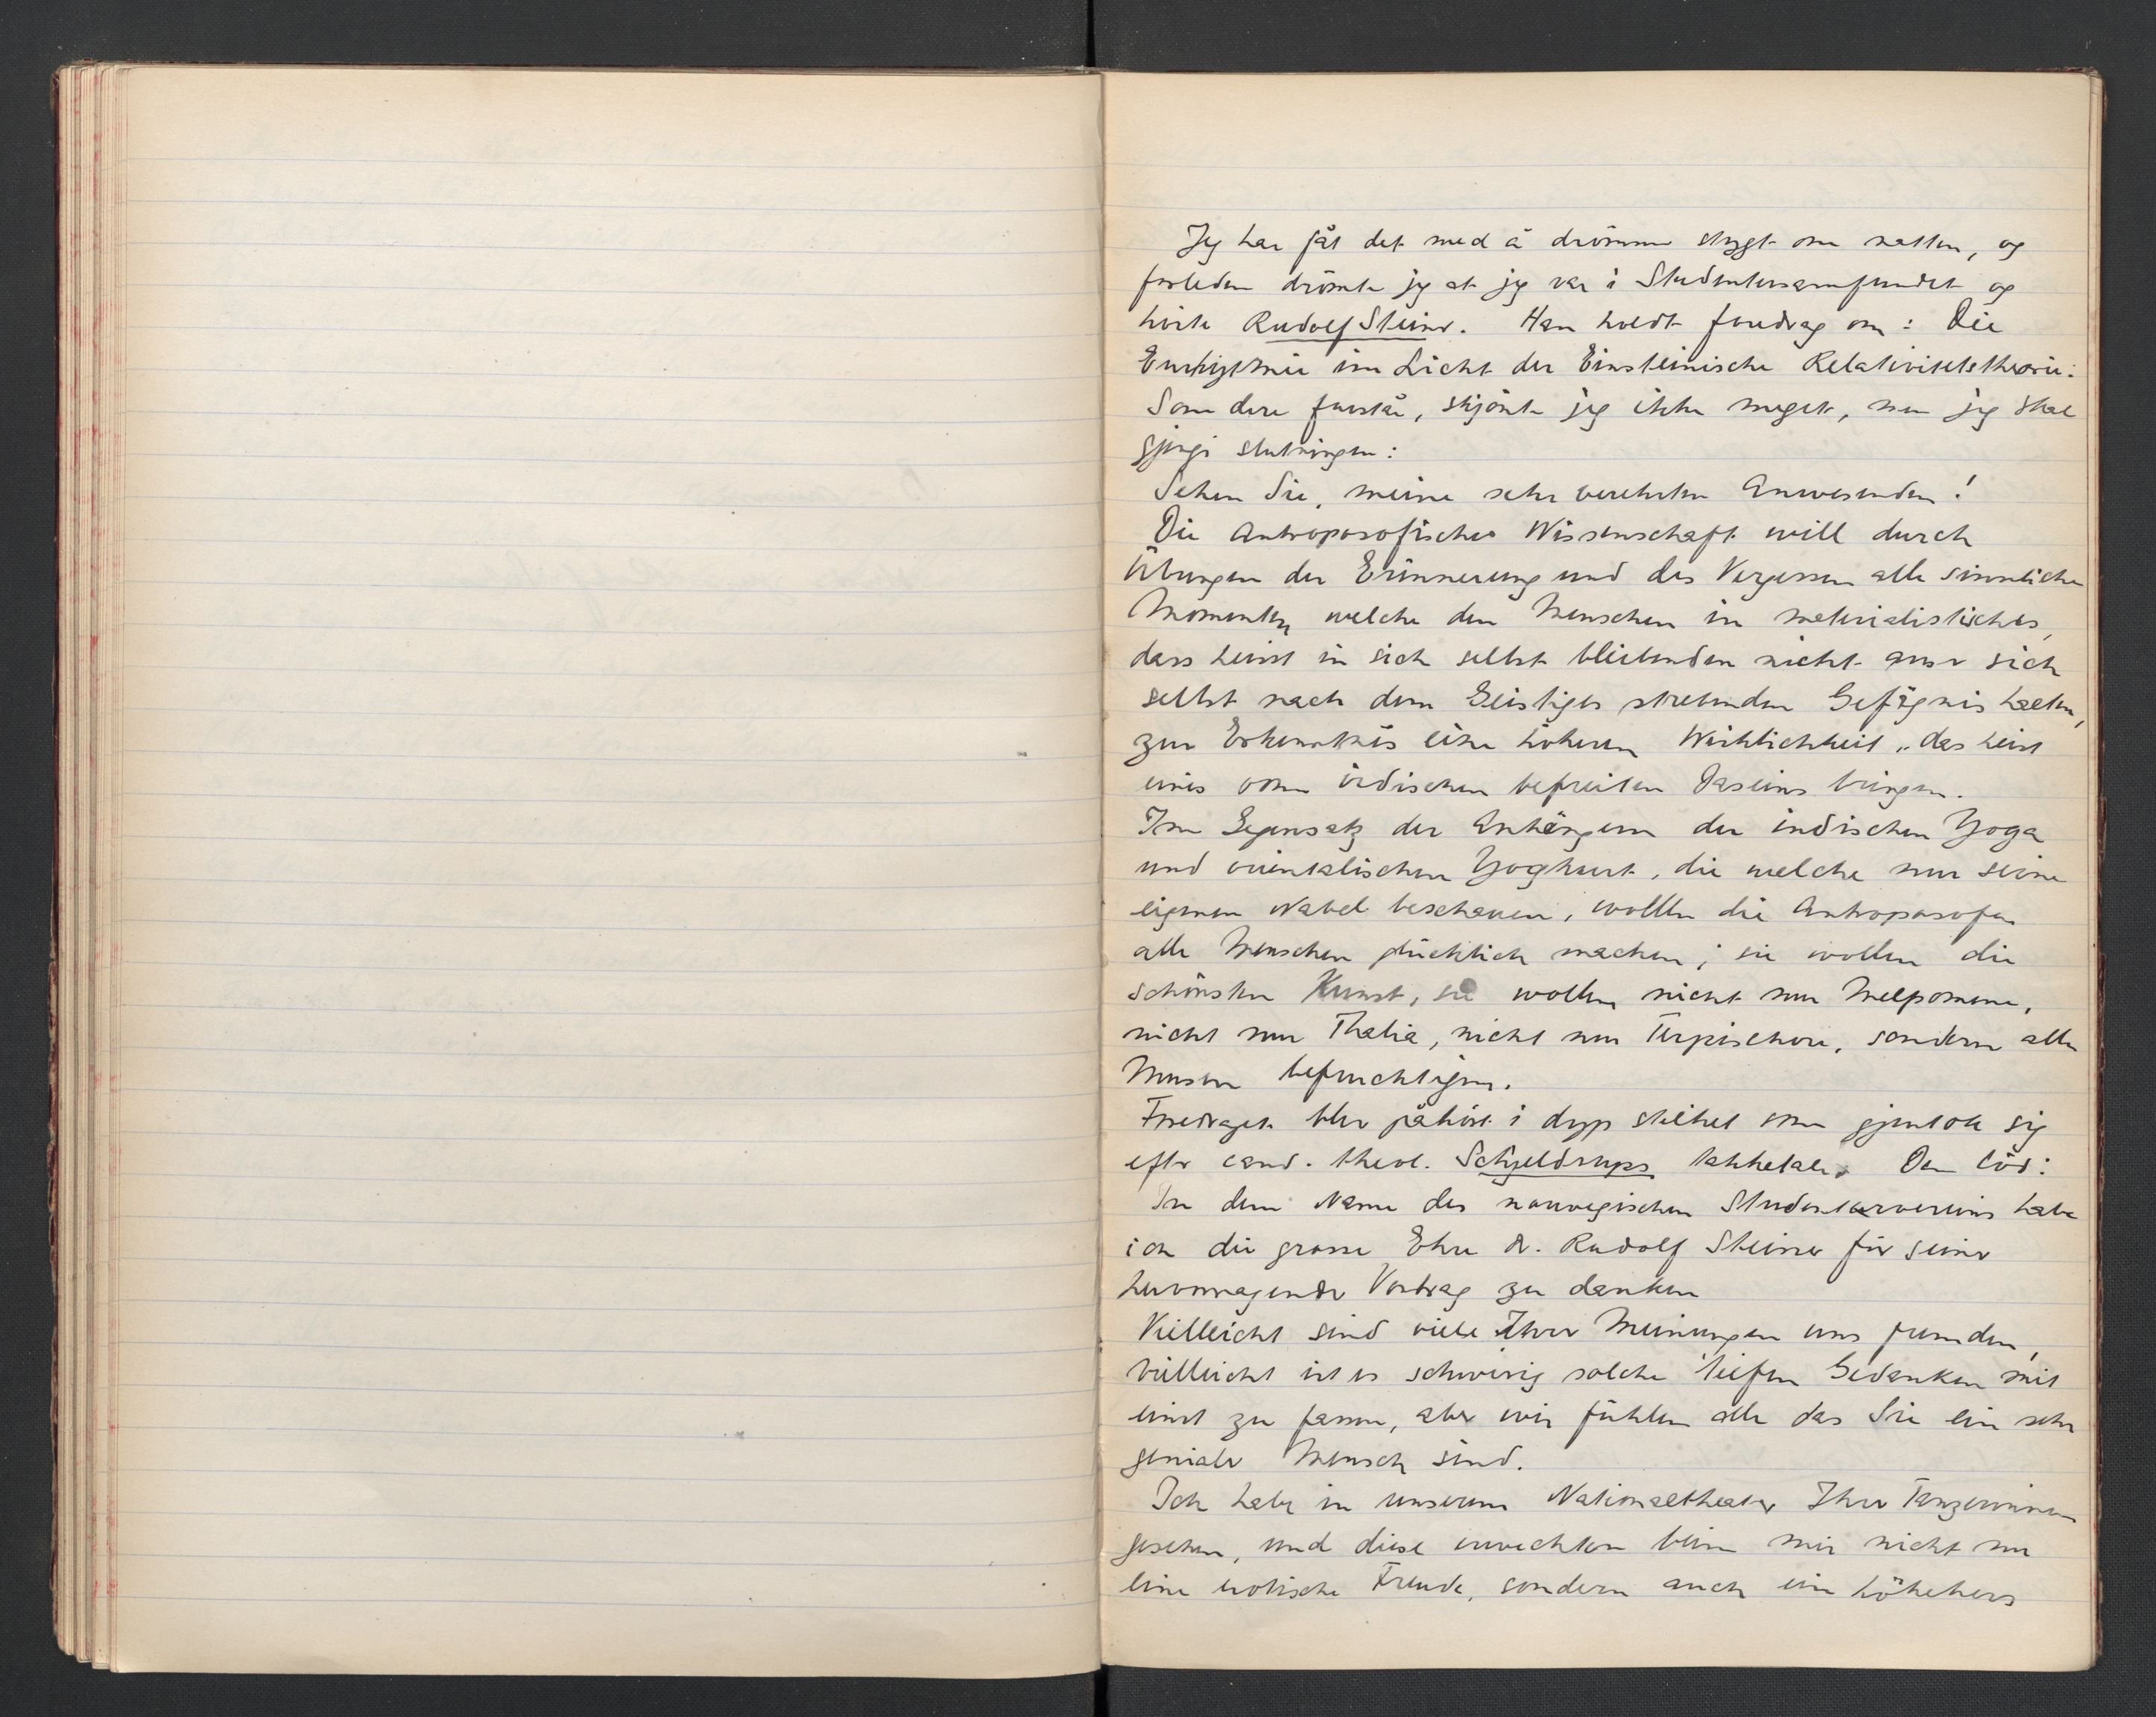 Jeg har fåt det med å drömme stygt om natten, og
forleden drömte jeg at jeg var i Studentersamfundet og
hörte Rudolf Steiner. Han holdt foredrag om: Die
Eurhytmie im Licht der Einsteinische Relativitetstheorie.
Som dere forstår, skjönte jeg ikke meget, men jeg skal
gjengi slutningen:
Sehen Sie, meine sehr verehrten Anwesenden!
Die Antroposofisches Wissenschaft will durch
Übungen der Erinnerung und des Vergessen alle sinnliche
Momenten welche den Menschen in materialistisches,
dass heisst in sich selbst bleibenden nicht auser sich
selbst nach dem Geistiges strebenden Gefägnis halten,
zur Erkenntnis eine höheren Wirklichkeit, das heist
eines vom irdischen befreiten Daseins bringen.
Im Gegensatz der Anhängern der indischen Yoga
und orientalischen Yoghurt, die welche nur seine
eigenen Nabel beschauen, wollen die Antroposofen
alle Menschen glücklich machen; sie wollen die
schönsten Kunst, sie wollen nicht nur Melpomene,
nicht nur Thalia, nicht nur Terpischore, sondern alle
Musen befruchtigen.
Foredraget blev påhört i dyp stilhet som gjentok sig
efter cand. theol. Schjeldrups takketale. Den löd:
In dem Name des norwegischen Studentervereins habe
ich die grosse Ehre dr. Rudolf Steiner für seiner
hervorragender Vortrag zu danken
Vielleicht sind viele Ihrer Meinungen uns fremden,
vielleicht ist es schwierig solche tiefen Gedanken mit
einst zu fassen, aber wir fühlen alle das Sie ein sehr
genialer Mensch sind.
Ich habe in unserem Nationaltheater Ihre Tanzerinnen
gesehen, und diese erweckten beim mir nicht nur
eine erotische Freude, sondern auch ein höheheres